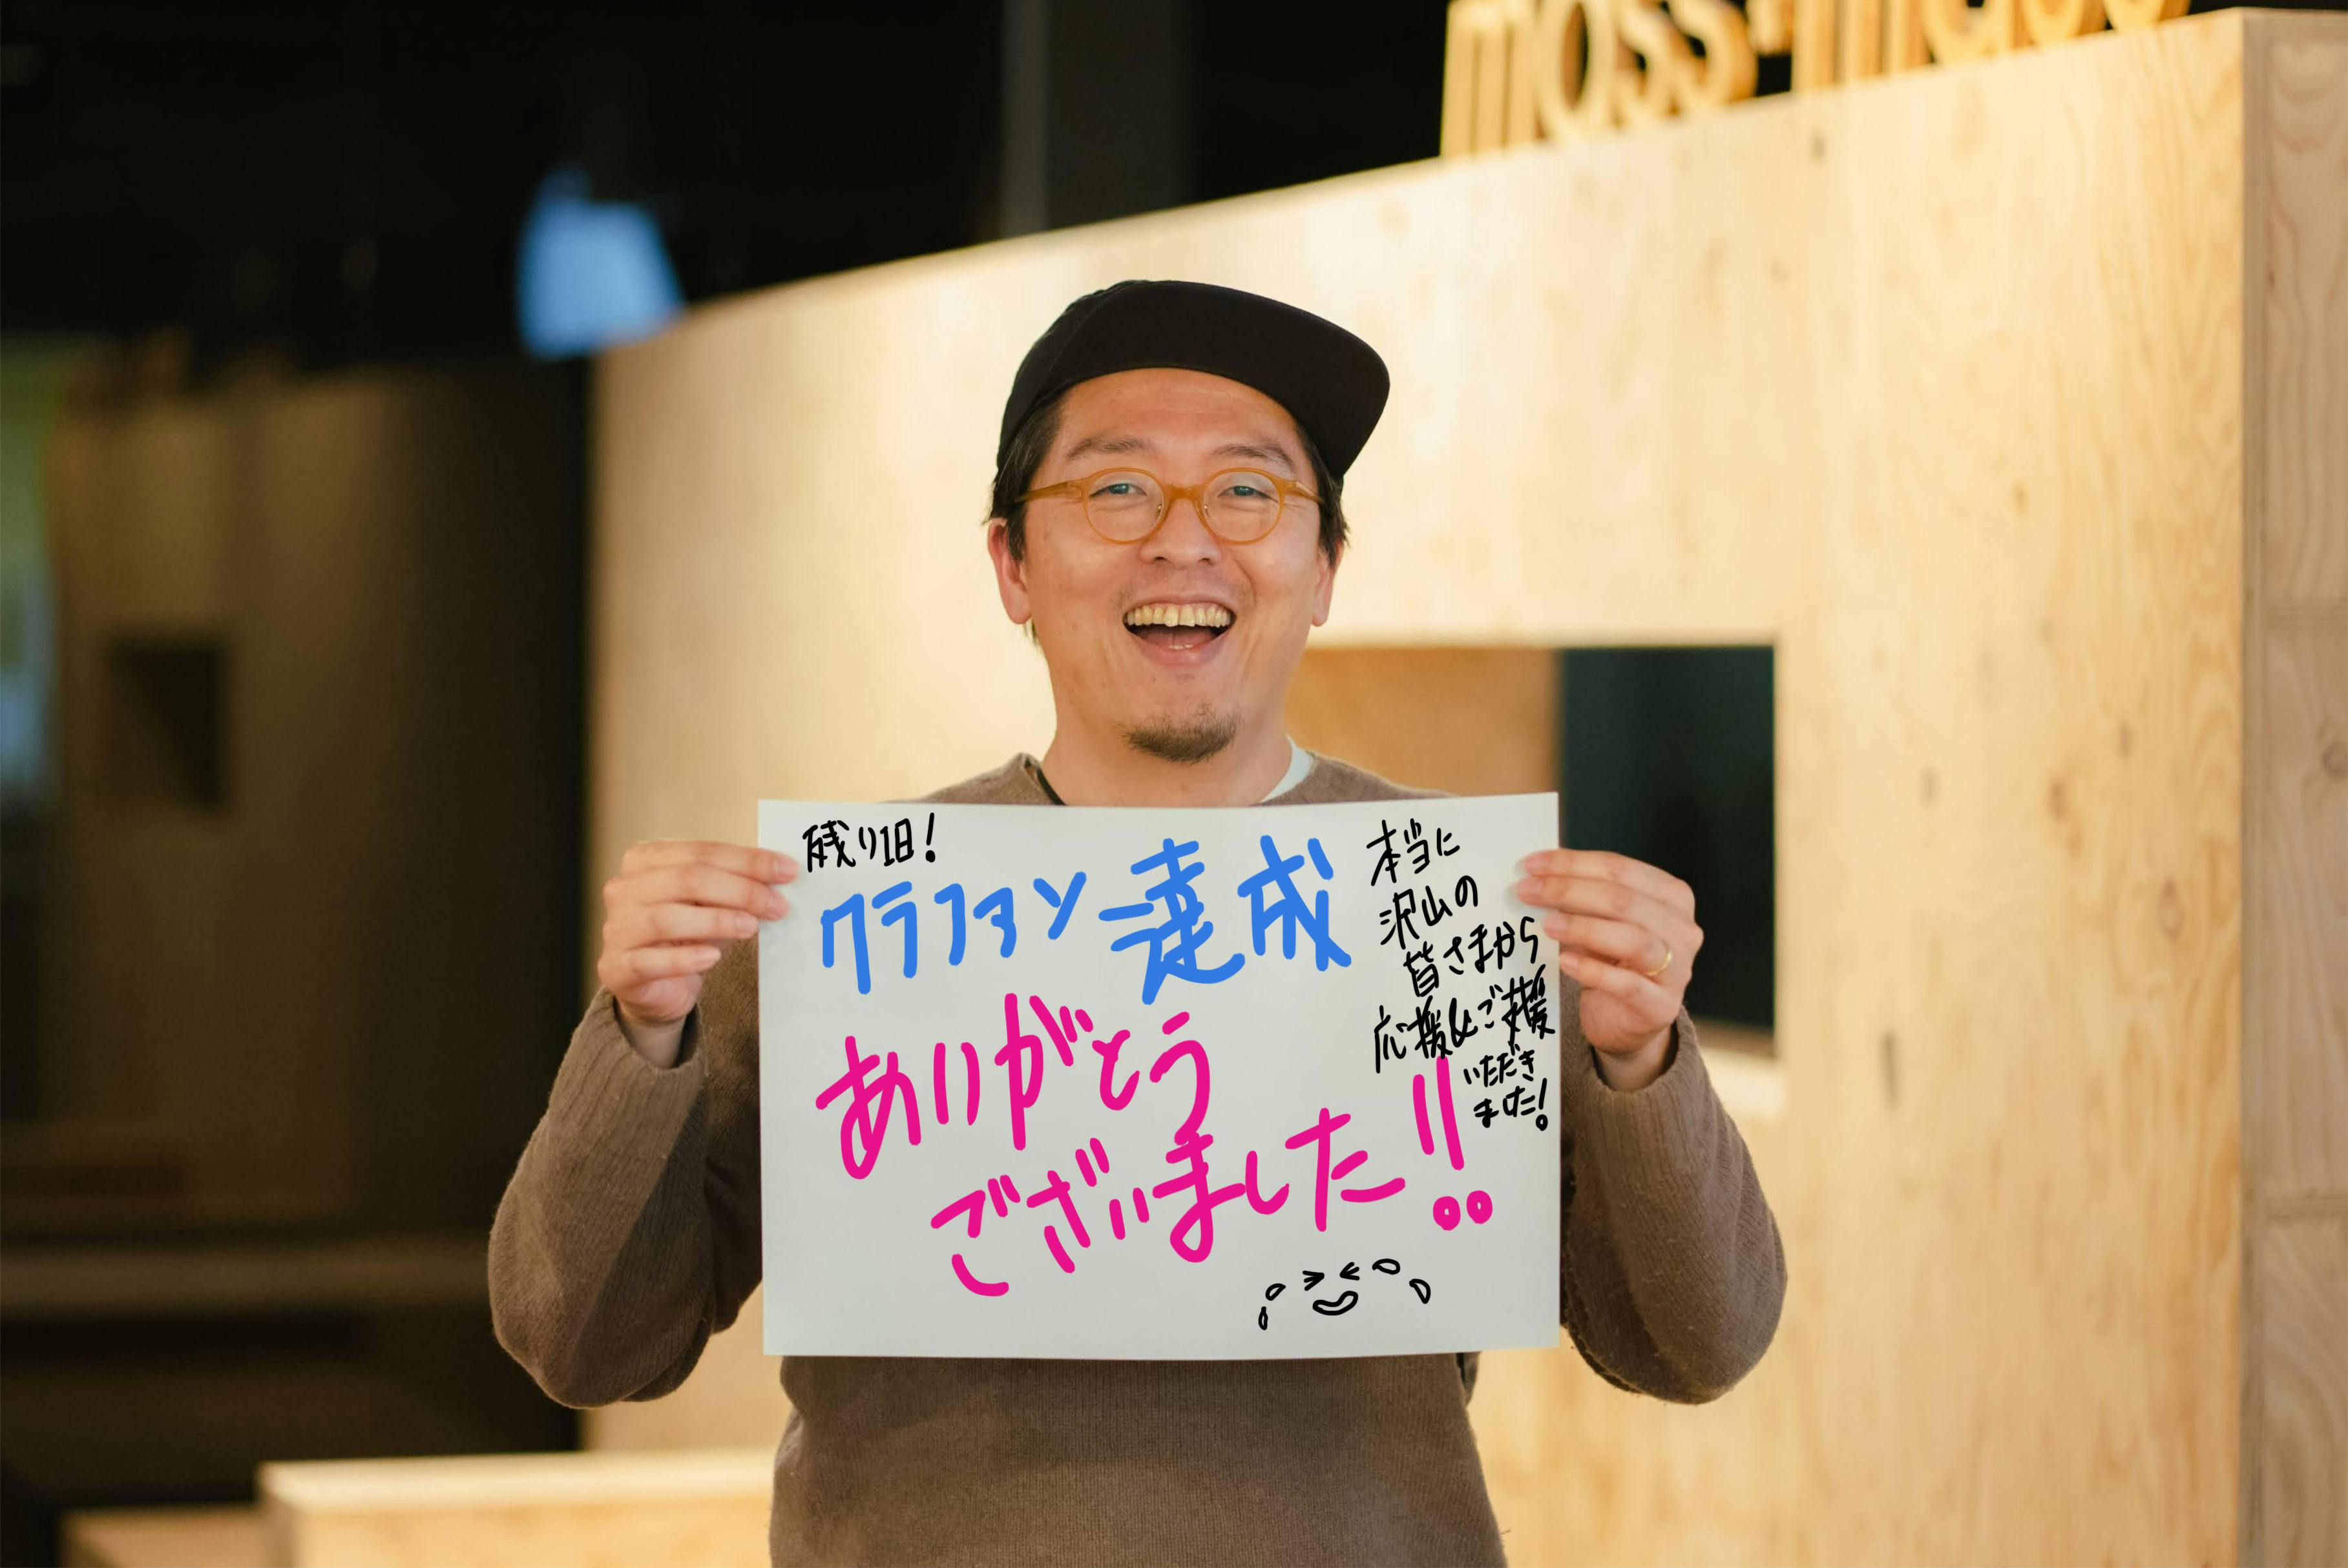 残り1日!
クラファン達成
ありがとう
ございました!!
本当に
沢山の
皆さまから
応援&ご支援
いただき
ました!